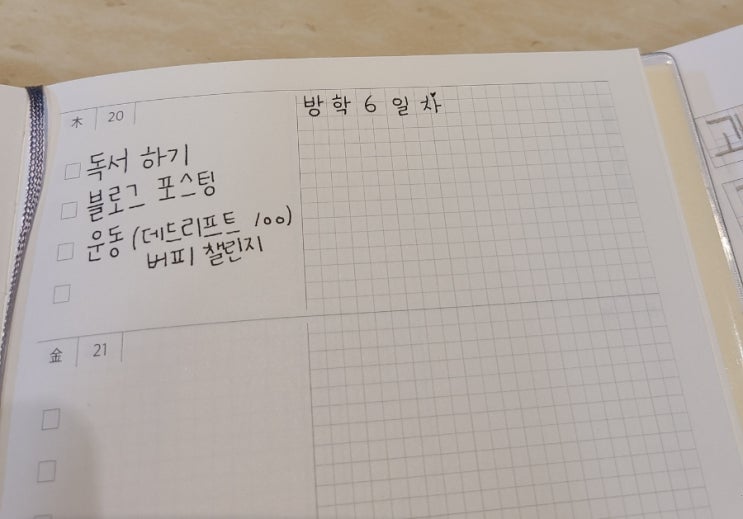 木 20
방학 6일차
독서 하기
블로그 포스팅
운동 (데드리프트 100)
버피 챌린지
金 21